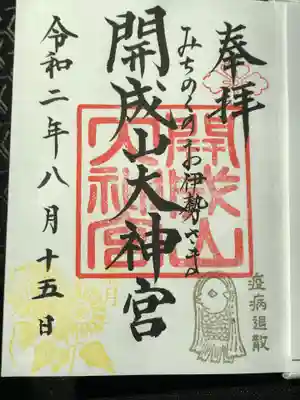 奉拝
みちのくのお伊勢さま
開成山大神宮
開成山大神宮
令和二年八月十五日
疫病退散
月